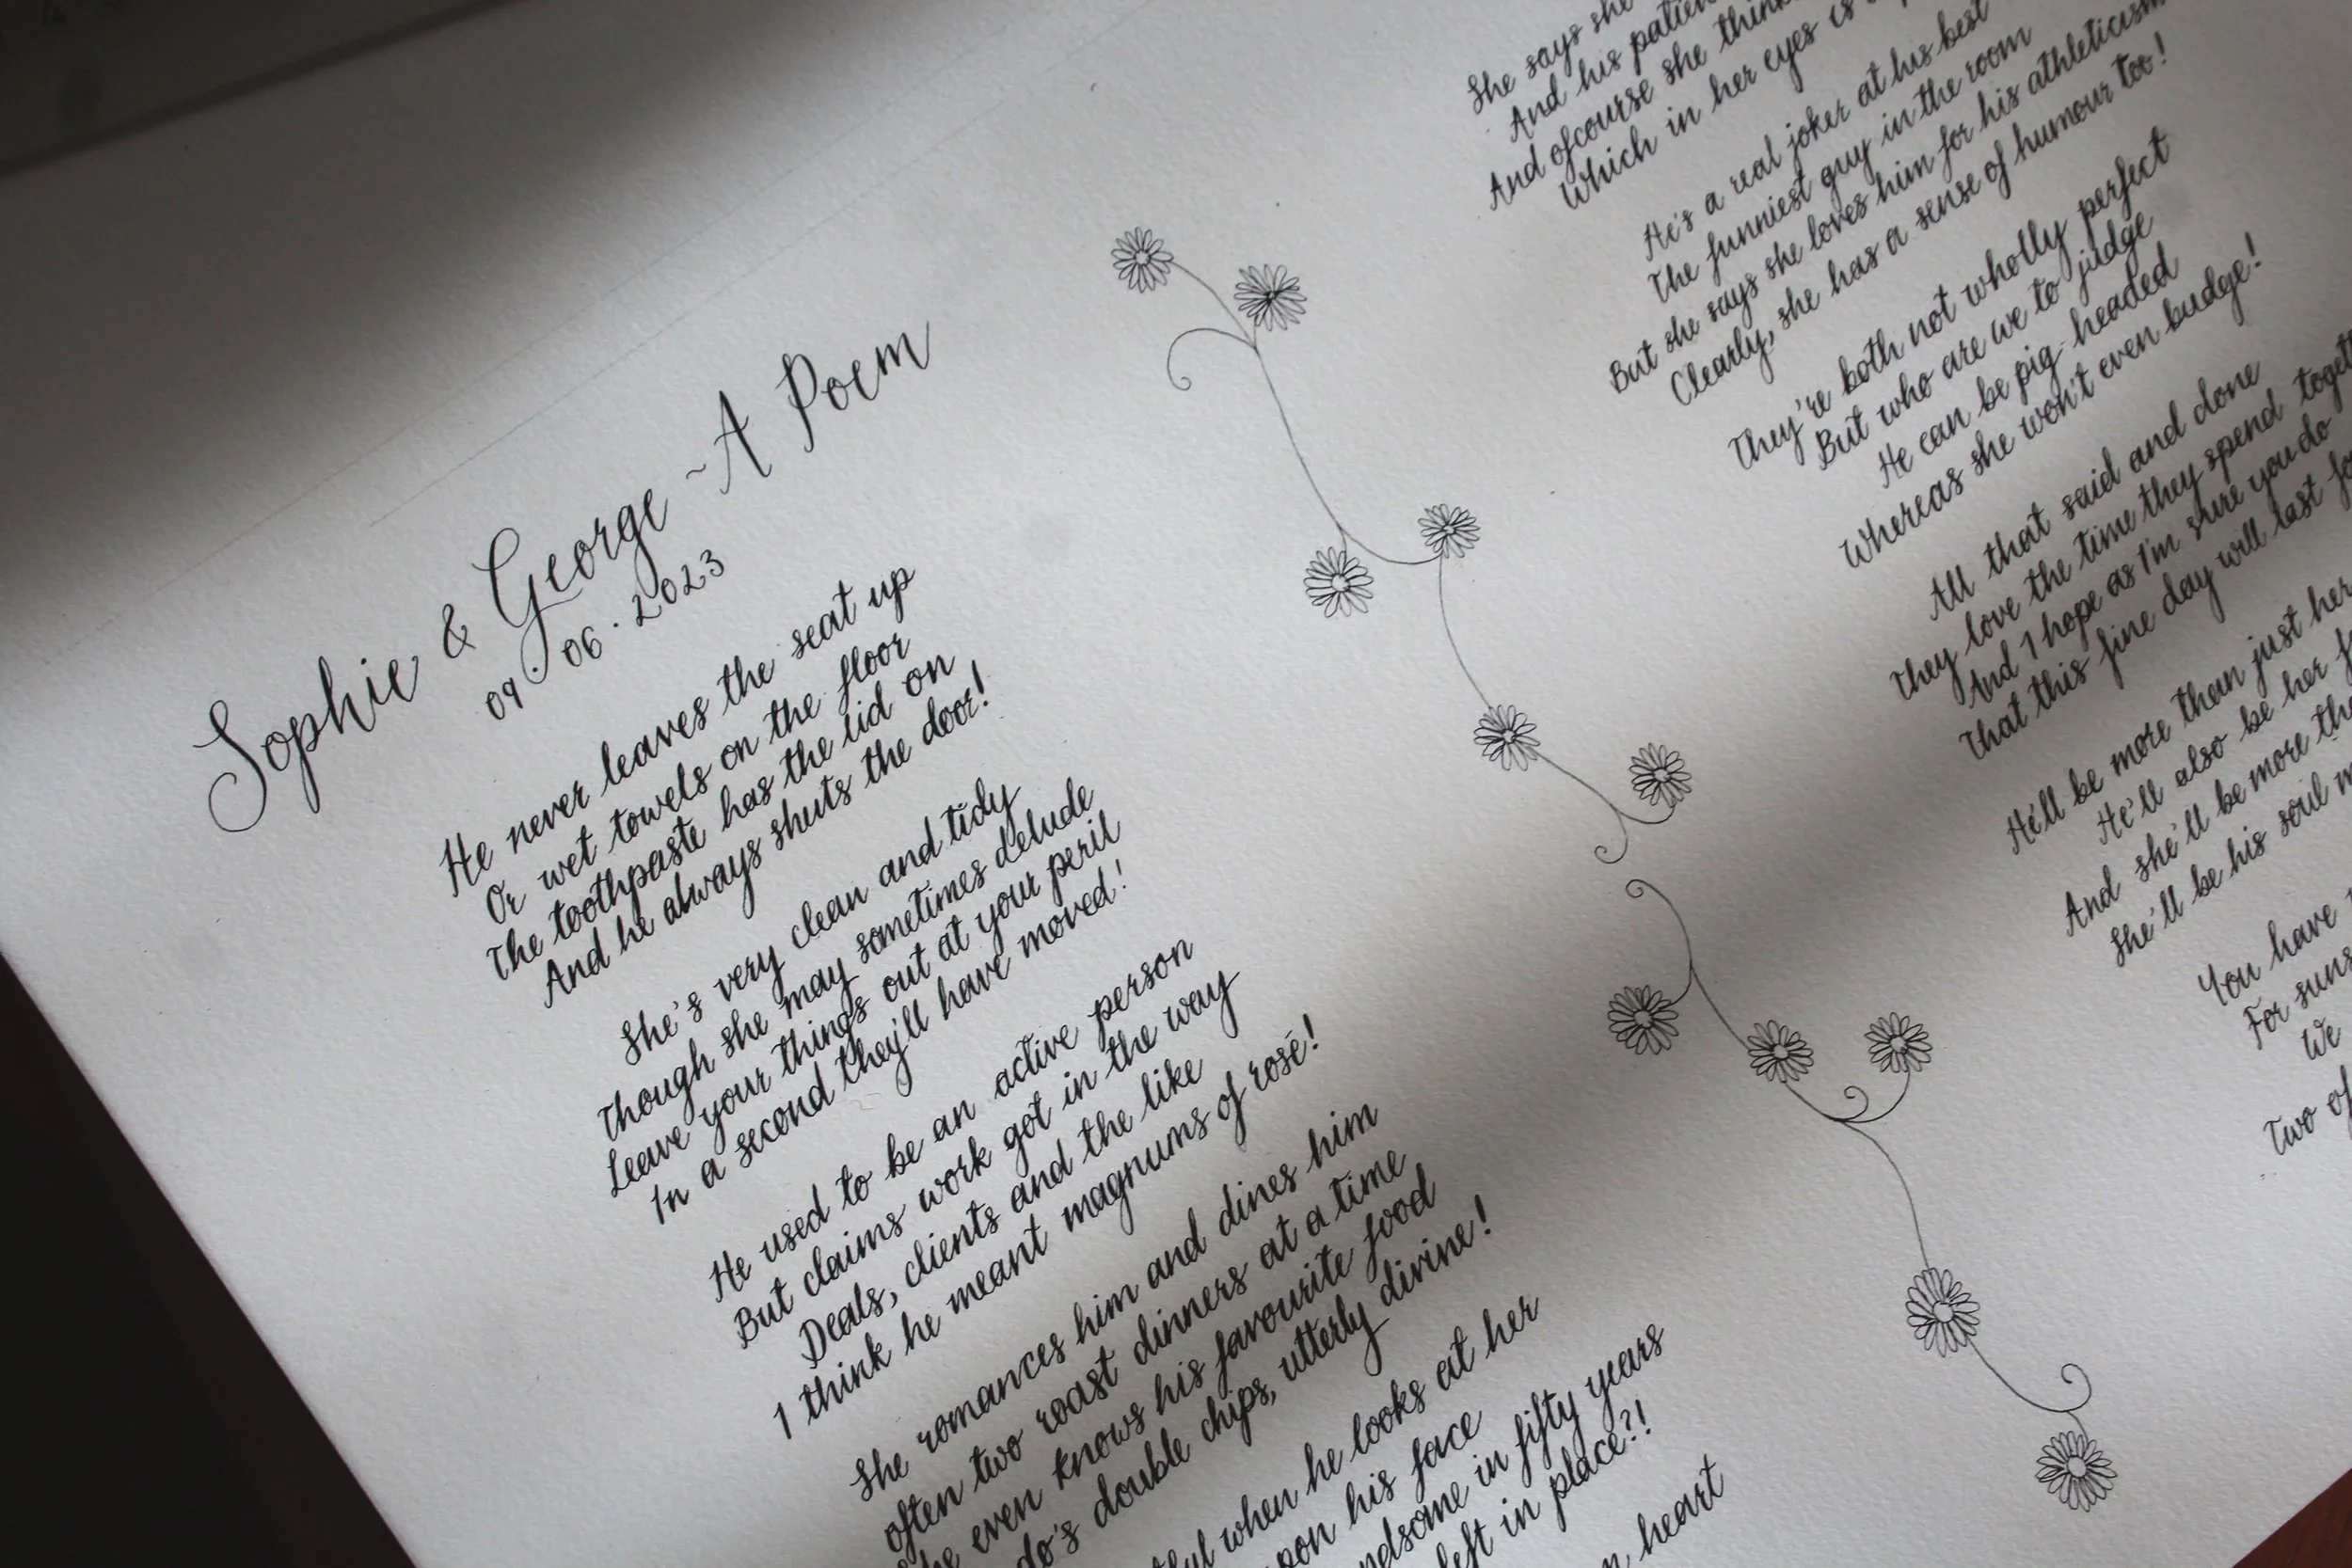 Sophie & George ~ A Poem
09.06.2023
He never leaves the seat up
Or wet towels on the floor
The toothpaste has the lid on
And he always shuts the door!
She's very clean and tidy
Though she may sometimes delude
Leave your things out at your peril
In a second they'll have moved!
He used to be an active person
But claims work got in the way
Deals, clients and the like
I think he meant magnums of rosé!
She romances him and dines him
Often two roast dinners at a time
even knows his favourite food
double chips, utterly divine!
when he looks at her
upon his face
in fifty years
left in place?!
heart
She says she
And his patien
And ofcourse she think
Which in her eyes is
He's a real joker at his best
The funniest guy in the room
But she says she loves him for his athleticism
Clearly, she has a sense of humour too!
They're both not wholly perfect
But who are we to judge
He can be pig-headed
Whereas she won't even budge!
All that said and done
They love the time they spend toget
And I hope as I'm sure you do
That this fine day will last fo
He'll be more than just her
He'll also be her f
And she'll be more tha
She'll be his soul m
You have
For suns
We
Two of